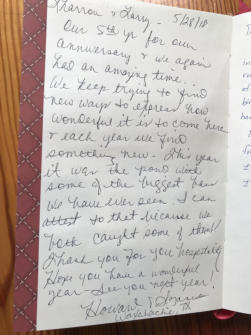 Sharron & Larry - 5/28/18
Our 5th yr for our
anniversary & we again
had an amazing time.
We keep trying to find
new ways to express how
wonderful it is to come here
& each year we find
something new. This year
it was the pond with
some of the biggest
we have ever seen. I can
attest to that because we
both caught some of them!
Thank you for your hospitality
Hope you have a wonderful
year. See you next year!
Howard &
Waxahachie, TX